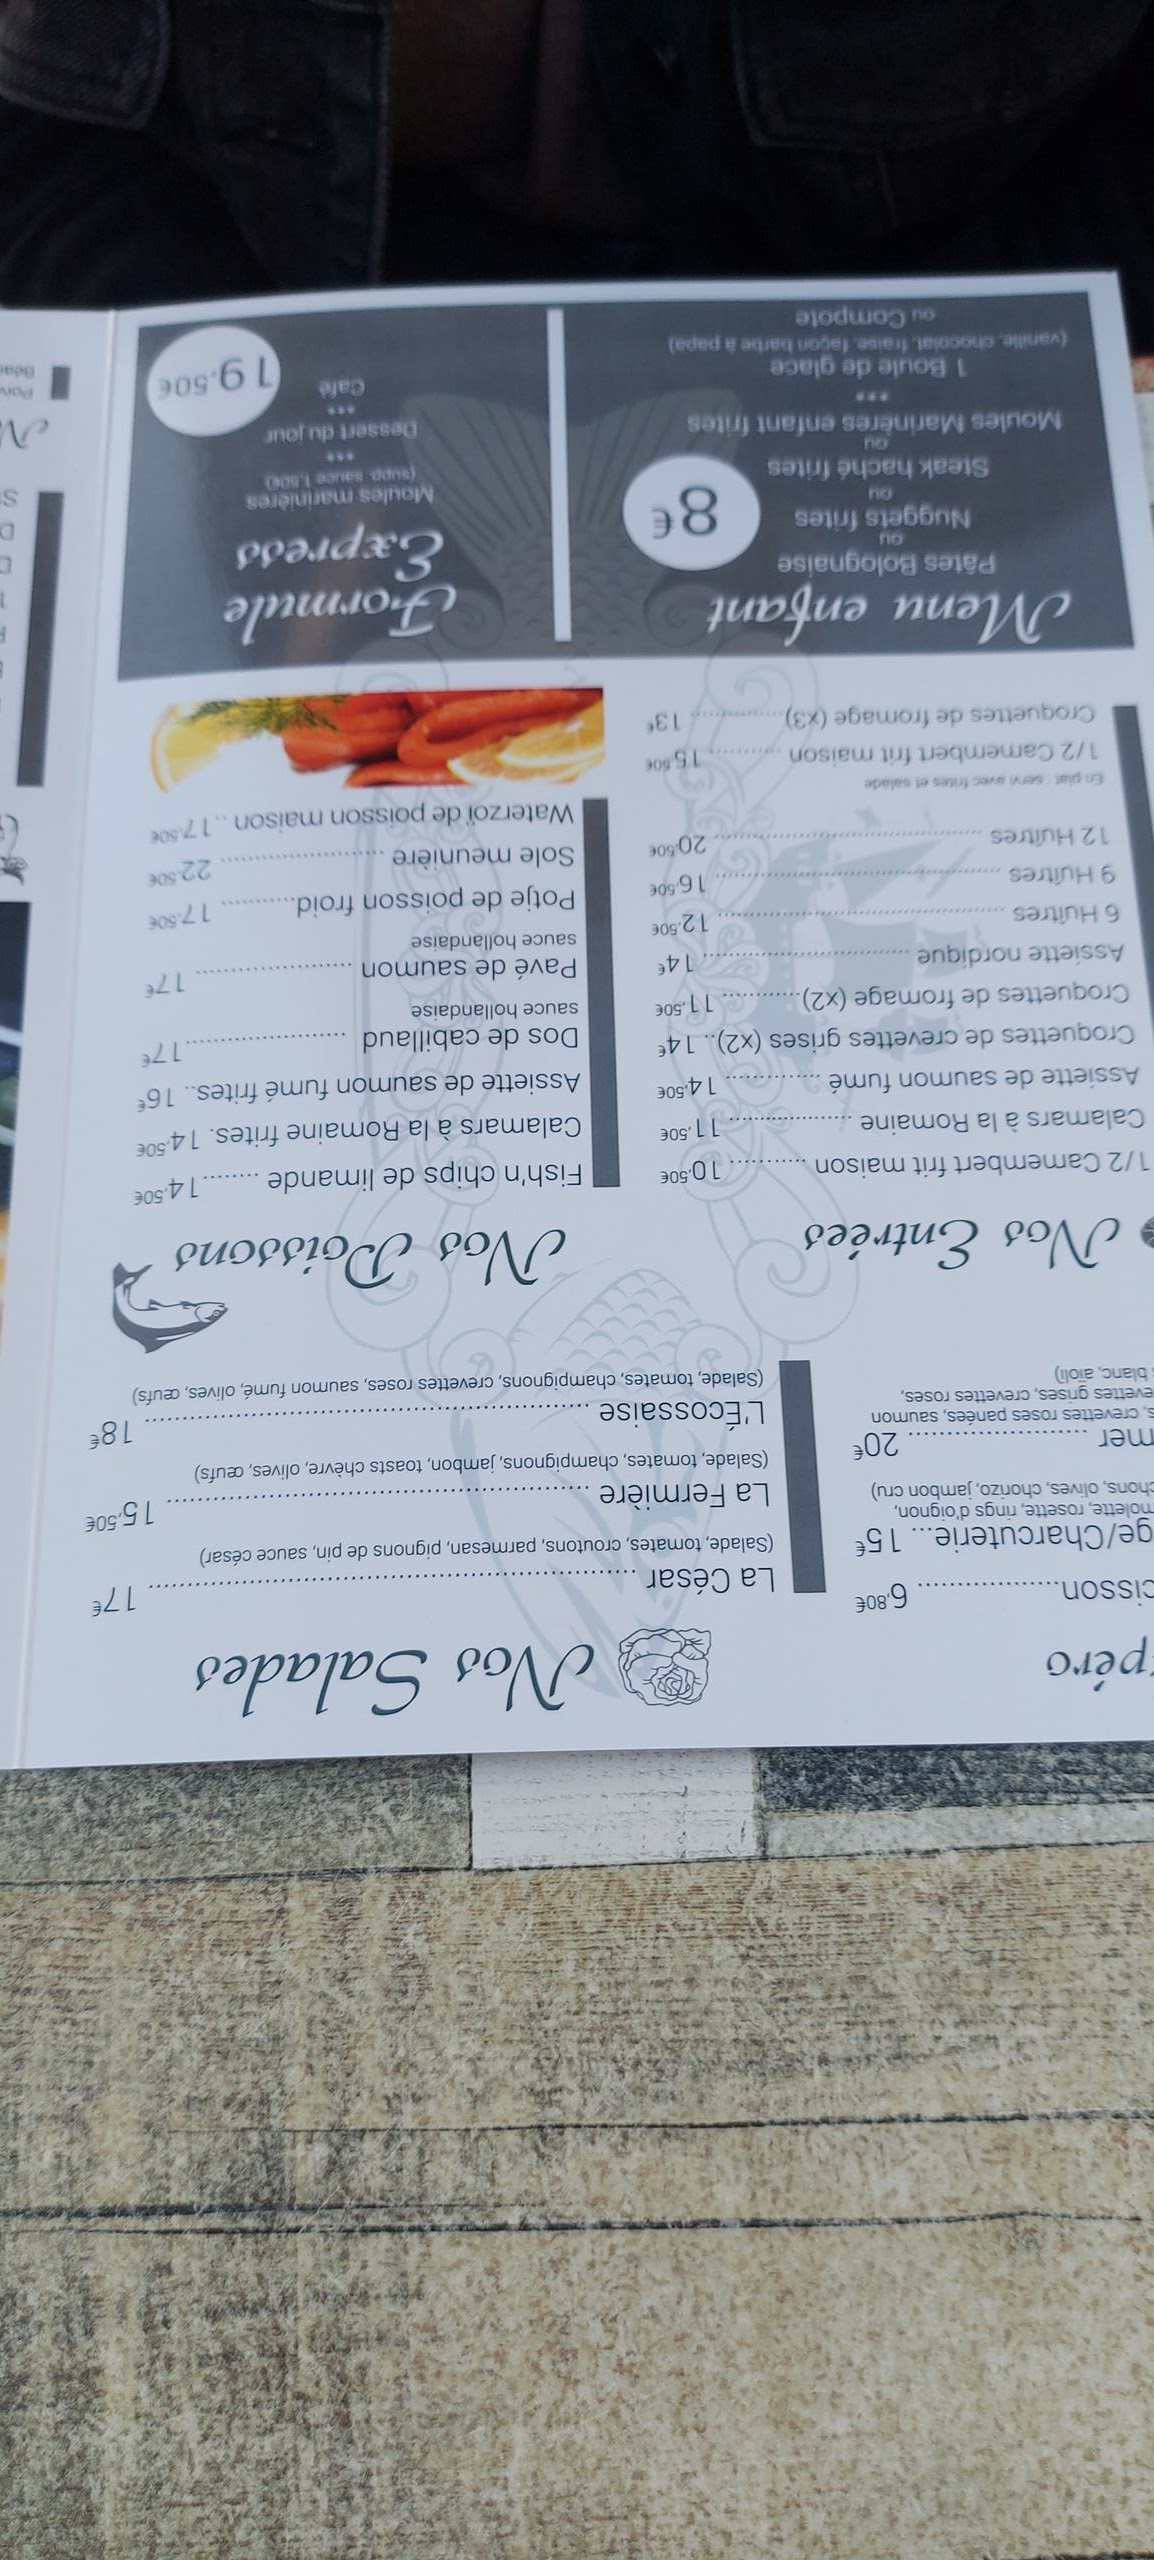 péro
cisson.................... 6,80€
ge/Charcuterie... 15€
molette, rosette, rings d'oignon,
chons, olives, chorizo, jambon cru)
mer ........................ 20€
s, crevettes roses panées, saumon
evettes grises, crevettes roses,
blanc, aïoli)
Nos Salades
La César ........ 17€
(Salade, tomates, croutons, parmesan, pignons de pin, sauce césar)
La Fermière ........ 15,50€
(Salade, tomates, champignons, jambon, toasts chèvre, olives, œufs)
L'Écossaise ........ 18€
(Salade, tomates, champignons, crevettes roses, saumon fumé, olives, œufs)
Nos Entrées
1/2 Camembert frit maison ........... 10,50€
Calamars à la Romaine .................. 11,50€
Assiette de saumon fumé .............. 14,50€
Croquettes de crevettes grises (x2).. 14€
Croquettes de fromage (x2)............ 11,50€
Assiette nordique ............................ 14€
6 Huîtres ........ 12,50€
9 Huîtres ........ 16,50€
12 Huîtres ........ 20,50€
En plat : servi avec frites et salade
1/2 Camembert frit maison ........... 15,50€
Croquettes de fromage (x3).............. 13€
Nos Poissons
Fish'n chips de limande ........14,50€
Calamars à la Romaine frites. 14,50€
Assiette de saumon fumé frites.. 16€
Dos de cabillaud ........................17€
sauce hollandaise
Pavé de saumon ....................... 17€
sauce hollandaise
Potje de poisson froid........... 17,50€
Sole meunière ........................ 22,50€
Waterzoï de poisson maison ..17,50€
Menu enfant
8€
Pâtes Bolognaise
ou
Nuggets frites
ou
Steak haché frites
ou
Moules Marinères enfant frites
***
1 Boule de glace
(vanille, chocolat, fraise, façon barbe à papa)
ou Compote
Formule
Express
Moules marinières
(supp. sauce 1,50€)
***
Dessert du jour
***
Café
19,50€